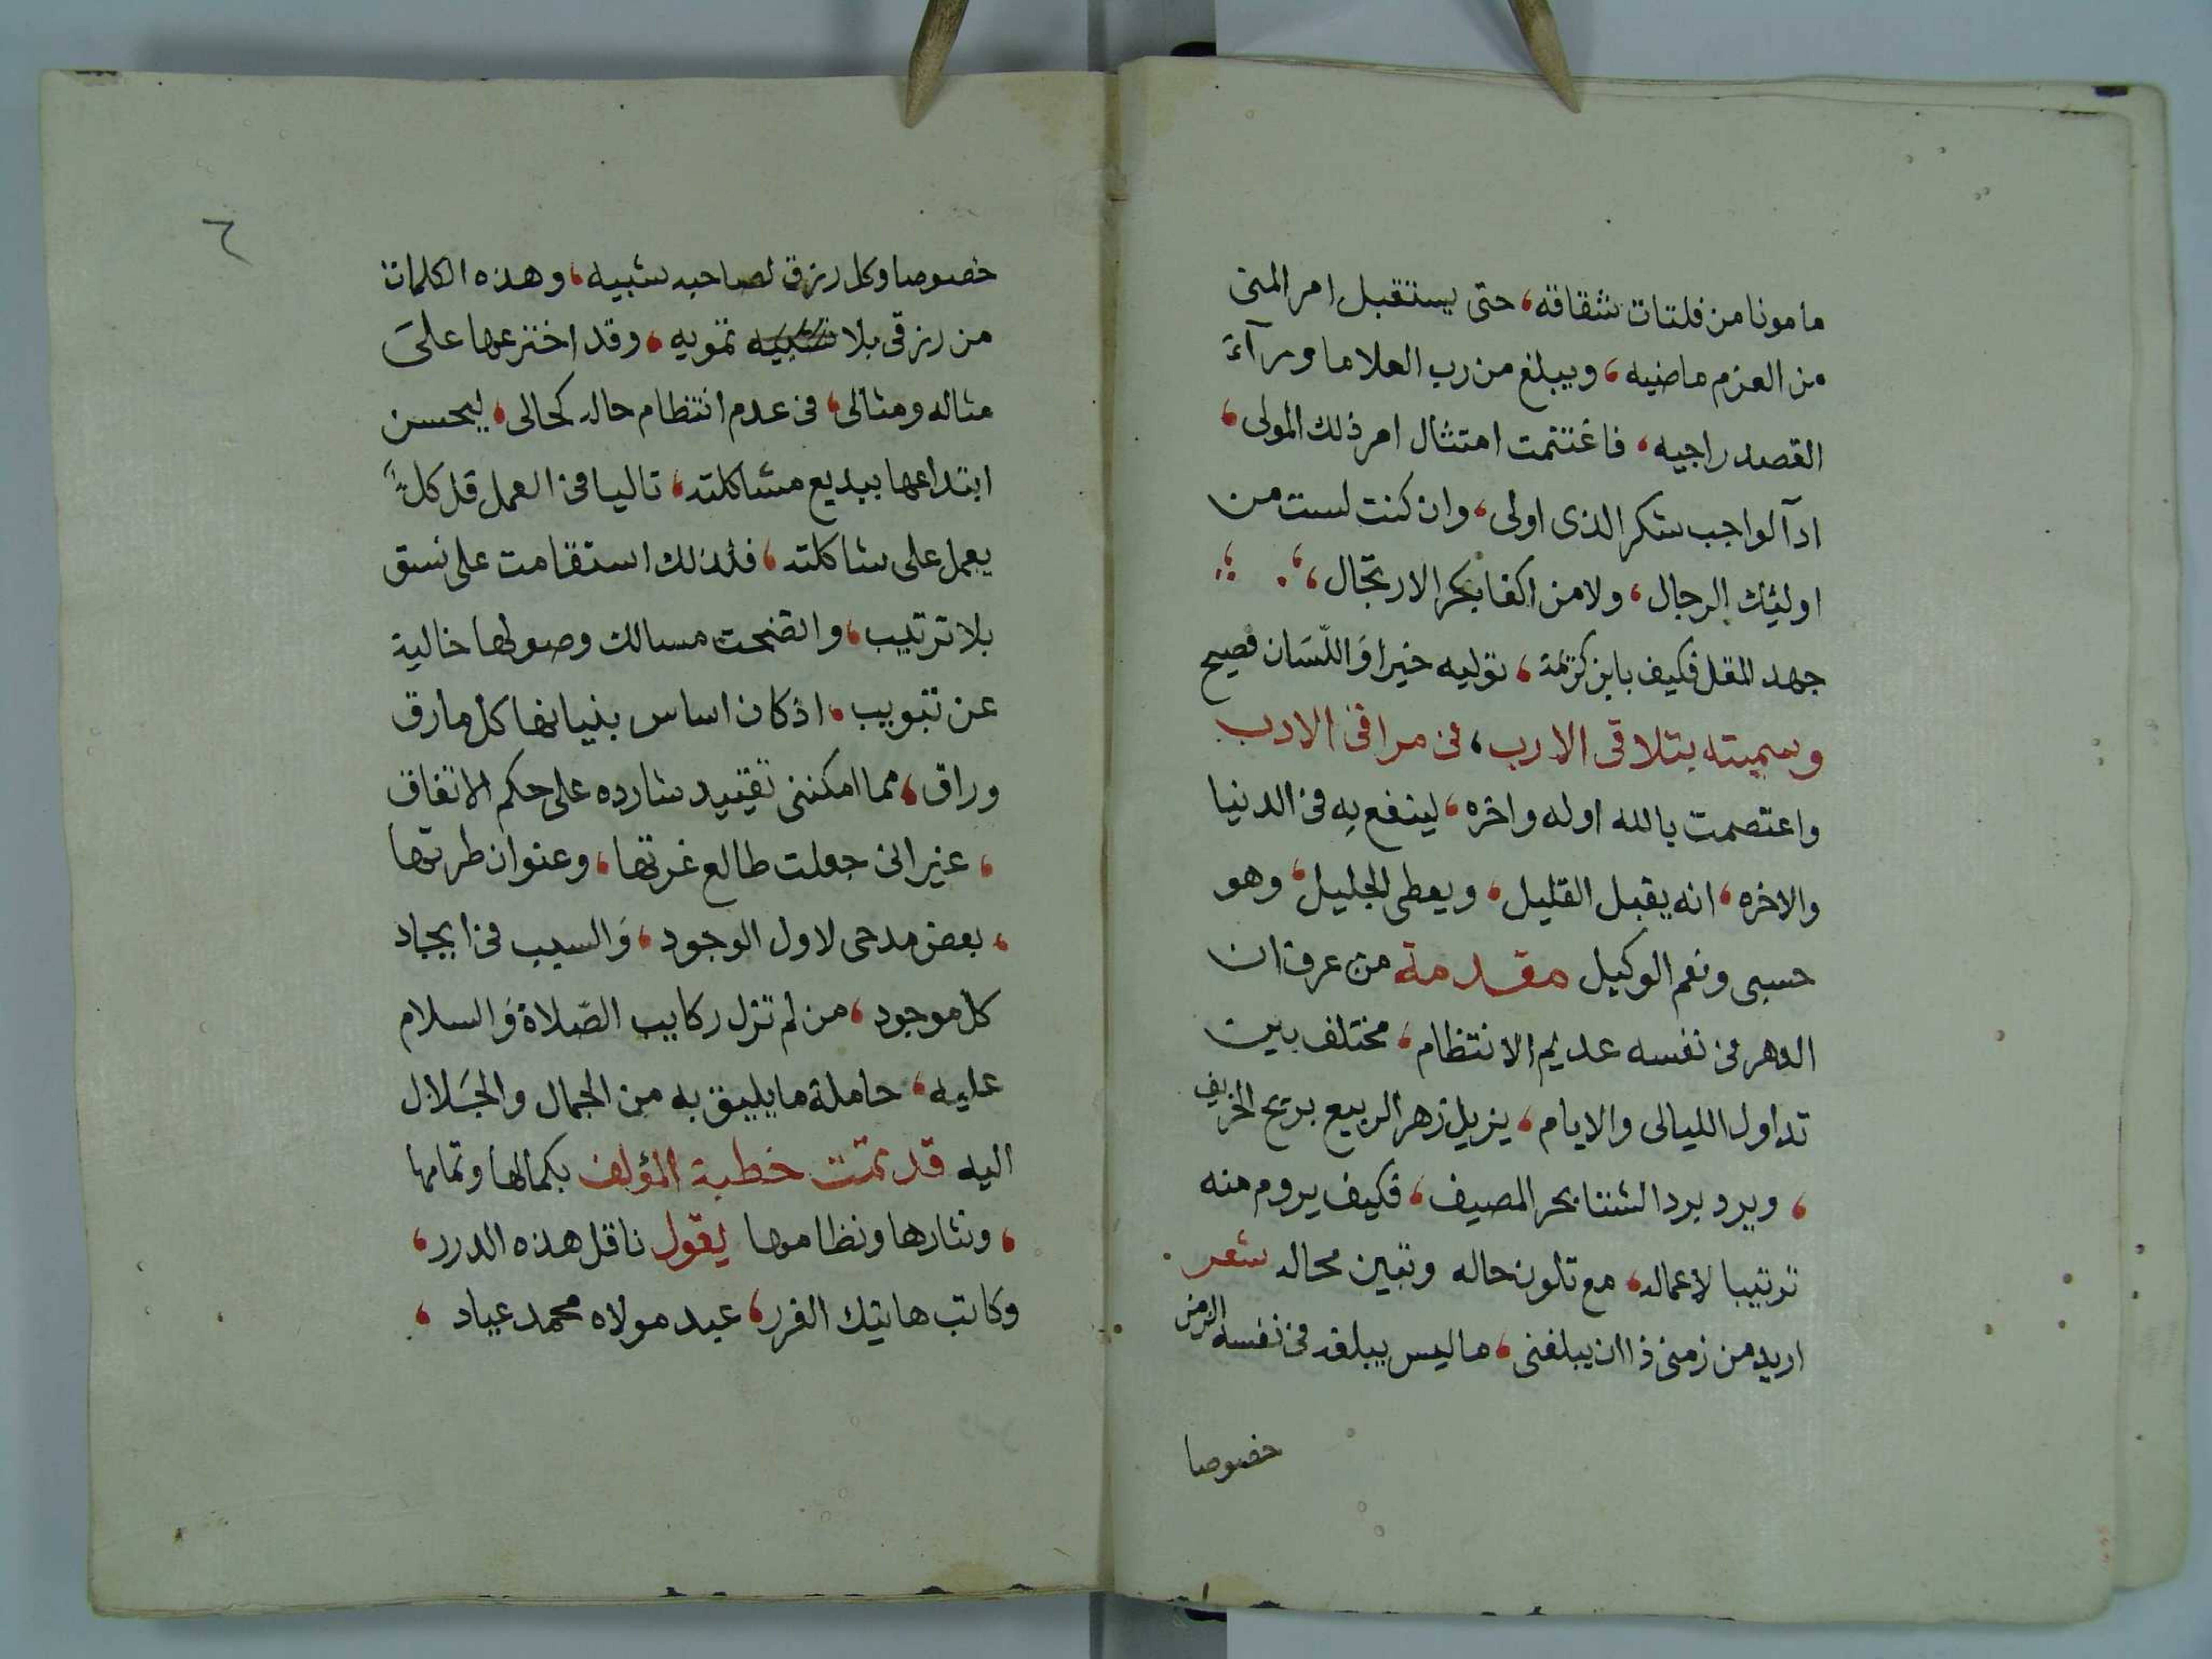 مأمونا من فلتات شقاقه، حتى يستقبل امر المنى
من العزم ماضيه، ويبلغ من رب العلا ما ورآء
القصد راجيه، فاغتنمت امتثال امر ذلك المولى،
ادآ لواجب شكر الذى اولى، وان كنت لست من
اولئك الرجال، ولا من اكفا بحر الارتجال،
جهد المقل فكيف بابن كريمة، توليه خيرا وَاللّسَان فصيح
وسميته بتلاقى الارب، فى مراقى الادب
واعتصمت بالله اوله واخره، لينفع به فى الدنيا
والاخره، انه يقبل القليل، ويعطى الجليل، وهو
حسبى ونعم الوكيل مقدمة من عرف ان
الدهر فى نفسه عديم الانتظام، مختلف بين
تداول الليالى والايام، يزيل زهر الربيع بريح الخريف
، ويرد برد الشتا بحر المصيف، فكيف يروم منه
ترتيبا لاعماله، مع تلون حاله وتبين محاله شعر
اريد من زمنى ذا ان يبلغنى، ما ليس يبلغه فى نفسه الزمن
خصوصا
٦
خصوصا وكل رزق لصاحبه شبيه، وهذه الكلمات
من رزقى بلا تمويه، وقد اخترعها علىَ
مثاله ومثالى، فى عدم انتظام حاله كحالى، ليحسن
ابتداعها ببديع مشاكلته، تاليا فى العمل قل كلٌ
يعمل على شاكلته، فلذلك استقامت على نسق
بلا ترتيب، واتضحت مسالك وصولها خالية
عن تبويب، اذ كان اساس بنيانها كل ما رق
وراق، مما امكننى تقييد شارده على حكم الاتفاق
، غير انى جعلت طالع غرتها، وعنوان طرتها
، بعض مدحى لاول الوجود، وَالسبب فى ايجاد
كل موجود، من لم تزل ركايب الصّلاة وَالسلام
عليه، حاملة ما يليق به من الجمال والجَلال
اليه قد تمت خطبة المؤلف بكمالها وتمامها
، ونثارها ونظامها يقول ناقل هذه الدرر،
وكاتب هاتيك الغرر، عبد مولاه محمد عياد،